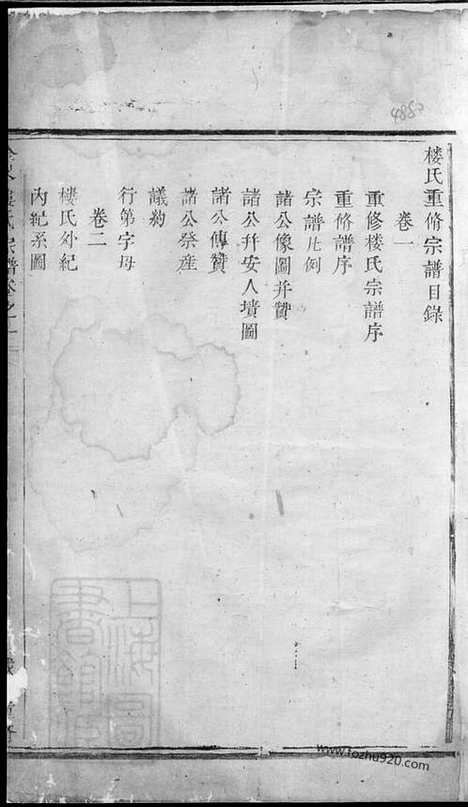 楼氏重脩宗譜目錄
卷一
重修楼氏宗譜序
重脩譜序
宗譜凡例
諸公像圖并贊
諸公并安人墳圖
諸公傳贊
諸公祭産
議約
行第字母
卷二
楼氏外紀
内紀系圖
上海圖
書館
www.tozhu920.com